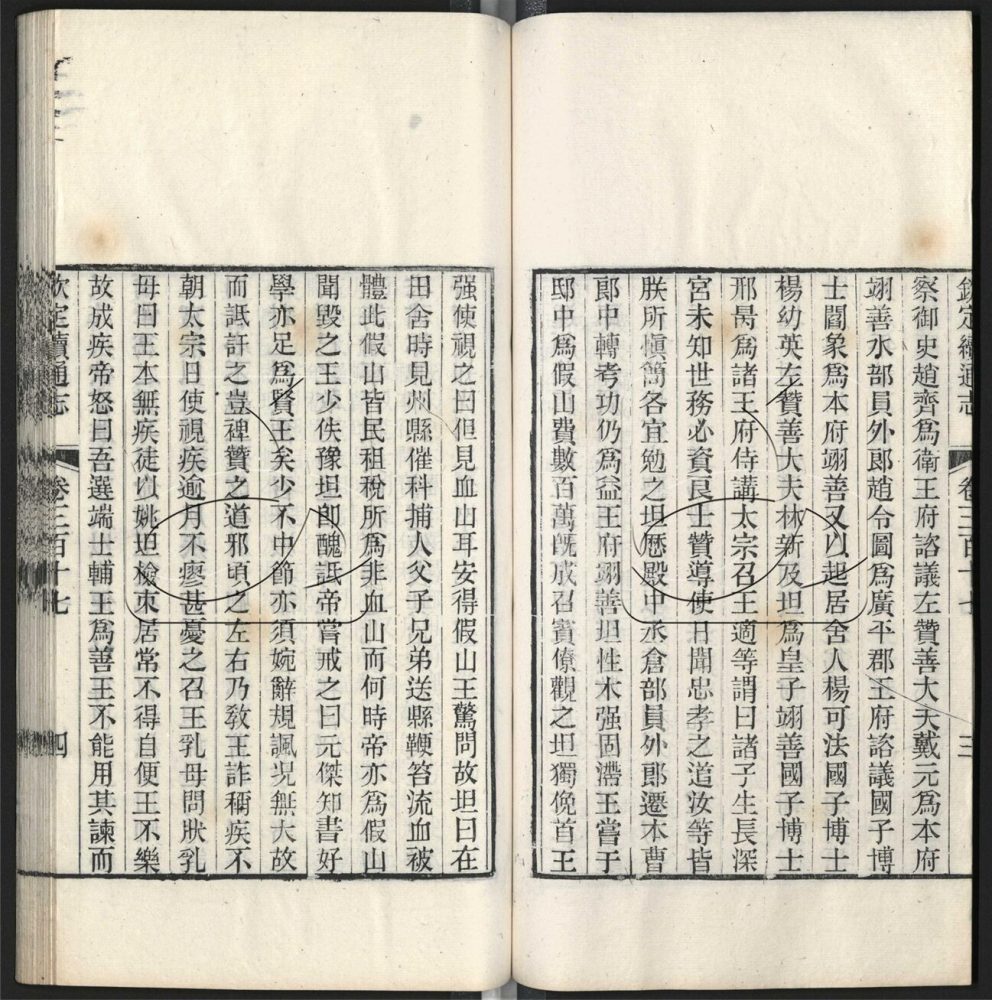 欽定續通志 卷三百十七 三
察御史趙齊爲衛王府諮議左贊善大夫戴元爲本府
翊善水部員外郎趙令圖爲廣平郡王府諮議國子博
士閻象爲本府翊善又以起居舍人楊可法國子博士
楊幼英左贊善大夫林新及坦爲皇子翊善國子博士
邢昺爲諸王府侍講太宗召王適等謂曰諸子生長深
宮未知世務必資良士贊導使日聞忠孝之道汝等皆
朕所愼簡各宜勉之坦歷殿中丞倉部員外郎遷本曹
郎中轉考功仍爲益王府翊善坦性木强固滯王嘗于
邸中爲假山費數百萬旣成召賓僚觀之坦獨俛首王
强使視之曰但見血山耳安得假山王驚問故坦曰在
田舍時見州縣催科捕人父子兄弟送縣鞭笞流血被
體此假山皆民租稅所爲非血山而何時帝亦爲假山
聞毀之王少佚豫坦卽醜詆帝嘗戒之曰元傑知書好
學亦足爲賢王矣少不中節亦須婉辭規諷況無大故
而詆訐之豈裨贊之道邪頃之左右乃敎王詐稱疾不
朝太宗日使視疾逾月不瘳甚憂之召王乳母問狀乳
母曰王本無疾徒以姚坦檢束居常不得自便王不樂
故成疾帝怒曰吾選端士輔王爲善王不能用其諫而
欽定續通志 卷三百十七 四